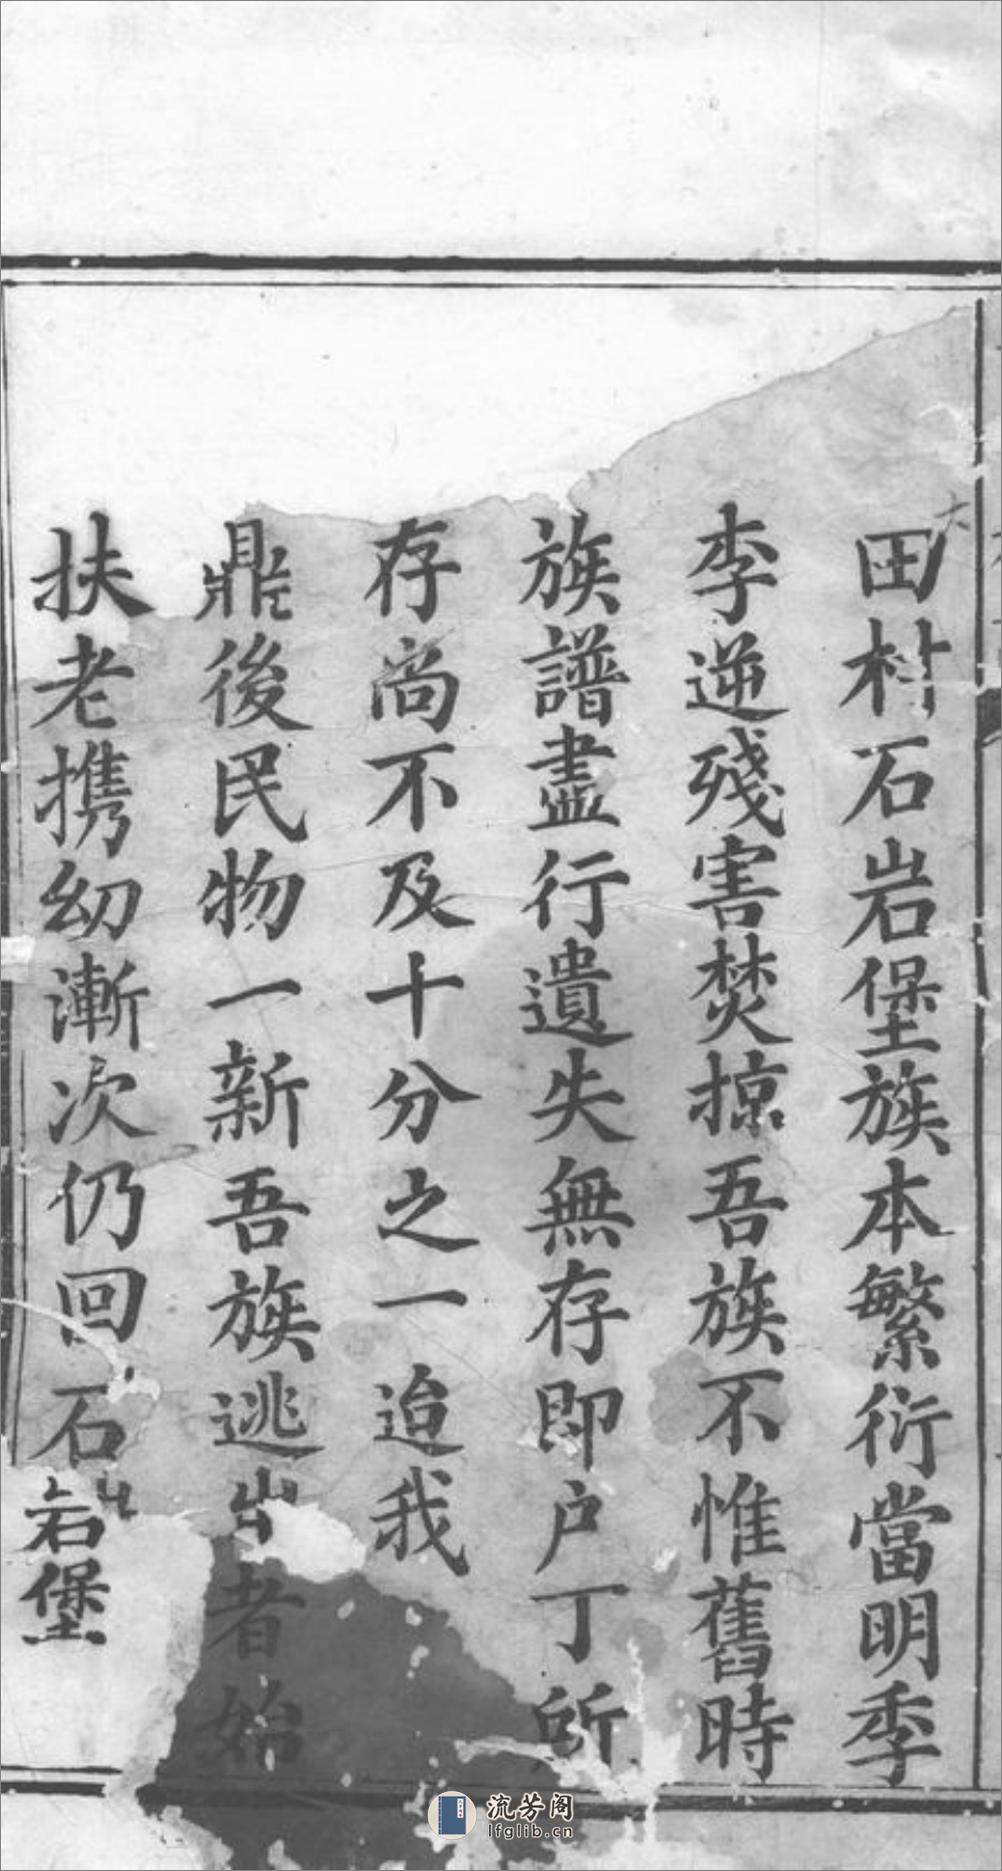 田村石岩堡族本繁衍當明季
李逆殘害焚掠吾族不惟舊時
族譜盡行遺失無存即户丁所
存尚不及十分之一迨我
鼎後民物一新吾族逃出者始
扶老携幼漸次仍回石岩堡
流芳阁
lfglib.cn